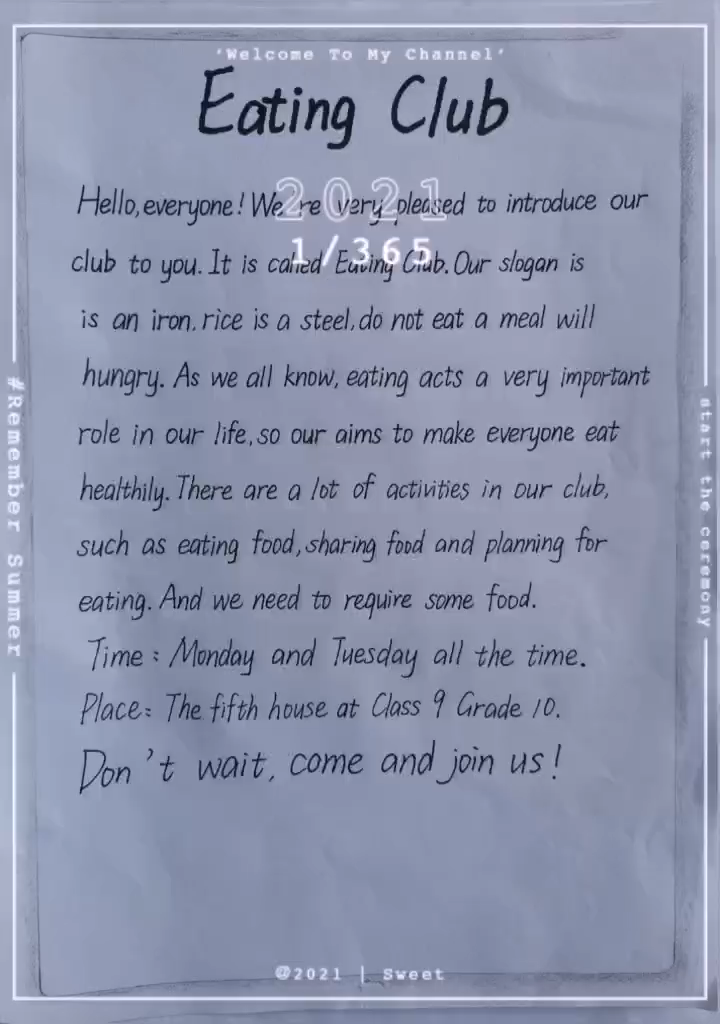 'Welcome To My Channel'
Eating Club
2021
1/365
Hello, everyone! We're very pleased to introduce our
club to you. It is called Eating Club. Our slogan is
is an iron, rice is a steel, do not eat a meal will
hungry. As we all know, eating acts a very important
role in our life, so our aims to make everyone eat
healthily. There are a lot of activities in our club,
such as eating food, sharing food and planning for
eating. And we need to require some food.
Time: Monday and Tuesday all the time.
Place: The fifth house at Class 9 Grade 10.
Don't wait, come and join us!
#Remember Summer
start the ceremony
@2021 | Sweet